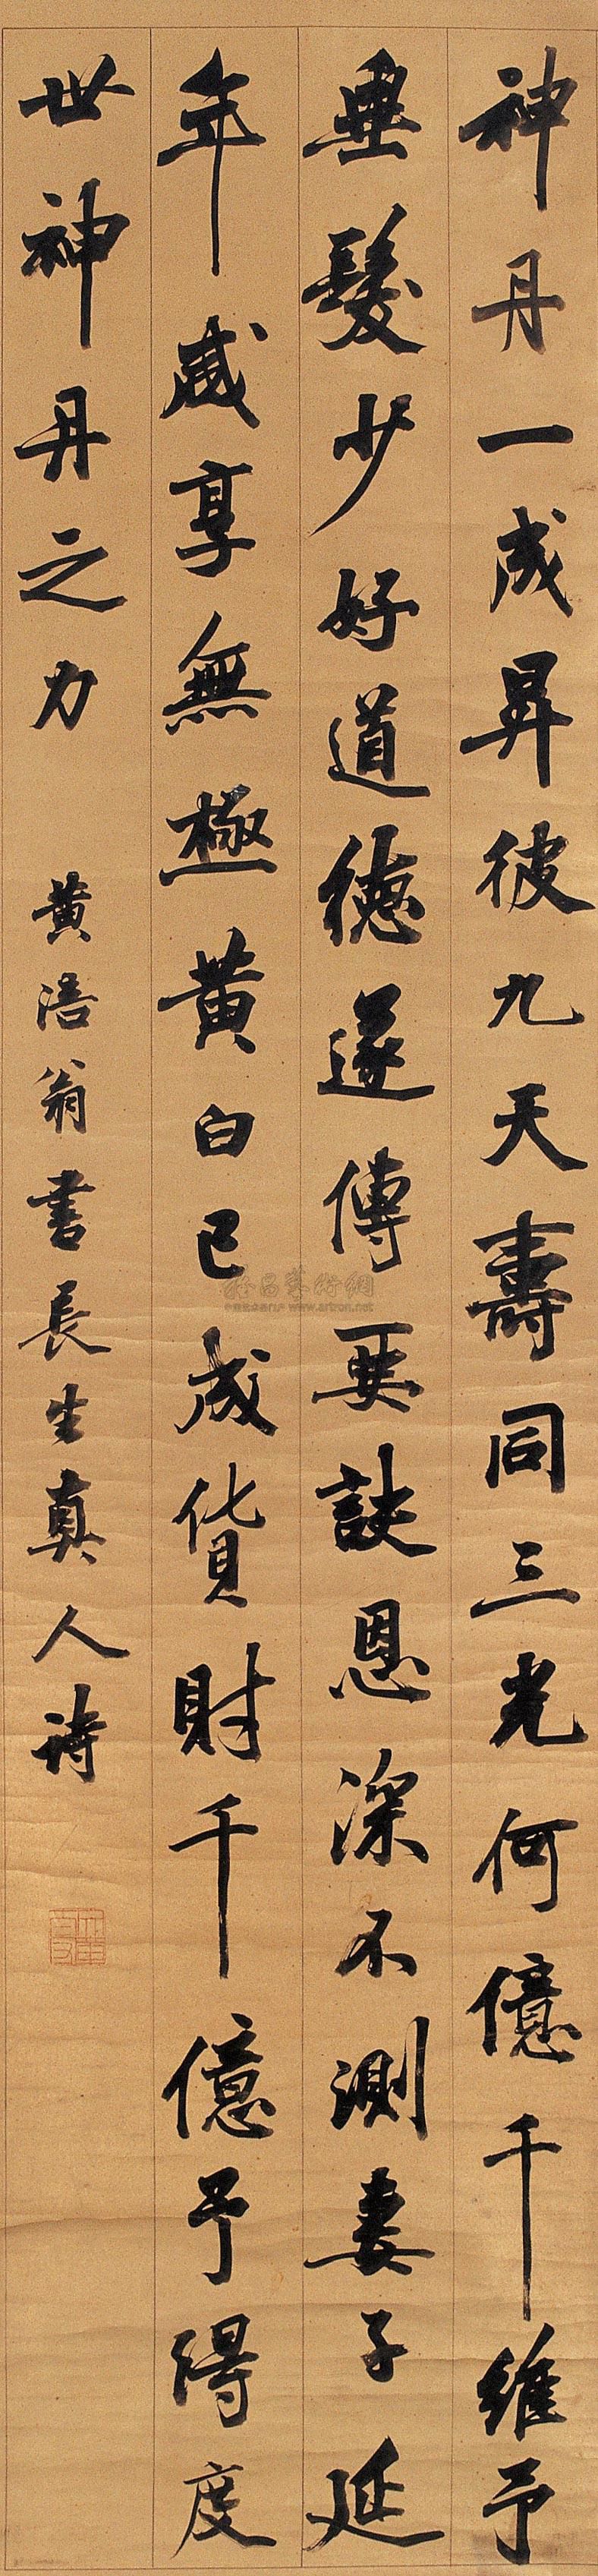 神丹一成昇彼九天壽同三光何億千維予
垂髮少好道德遂傳要訣恩深不測妻子延
年咸享無極黃白已成貨財千億予得度
世神丹之力
黃浯翁書長生真人詩
www.artron.net